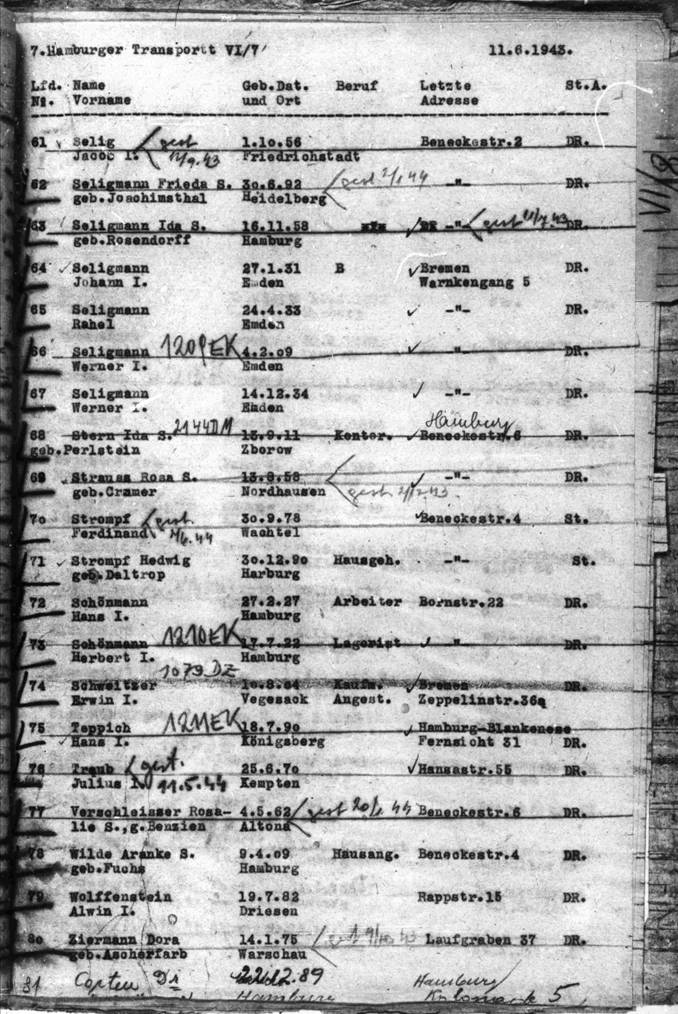 7.Hamburger Transportt VI/7 11.6.1943.
Lfd. Name Geb.Dat. Beruf Letzte St.A.
Nr. Vorname und Ort Adresse
61 Selig gest 1.10.56 Beneckestr.2 DR.
Jacob I. 12/9.43 Friedrichstadt
62 Seligmann Frieda S. 30.6.92 gest 2/1 44 -"- DR.
geb.Joachimsthal Heidelberg
63 Seligmann Ida S. 16.11.58 -"- gest DR.
geb.Rosendorff Hamburg
64 Seligmann 27.1.31 B Bremen DR.
Johann I. Emden Warnkengang 5
65 Seligmann 24.4.33 -"- DR.
Rahel Emden
66 Seligmann 1209EK 4.2.09 " DR.
Werner I. Emden
67 Seligmann 14.12.34 -"- DR.
Werner I. Emden
Hamburg
68 Stern Ida S. 2144DM 13.9.11 Kontor. Beneckestr.6 DR.
geb.Perlstein Zborow
69 Strauss Rosa S. 13.6.58 -"- DR.
geb.Cramer Nordhausen gest 2/12.43.
70 Strompf gest 30.9.78 Beneckestr.4 St.
Ferdinand /6.44 Wachtel
71 Strompf Hedwig 30.12.90 Hausgeh. -"- St.
geb.Daltrop Harburg
72 Schönmann 27.2.27 Arbeiter Bornstr.22 DR.
Hans I. Hamburg
73 Schönmann 1210EK 17.7.22 Lagerist " DR.
Herbert I. Hamburg
1079 DZ
74 Schweitzer 10.8.84 Kaufm. Bremen DR.
Erwin I. Vegesack Angest. Zeppelinstr.36a
75 Teppich 1211EK 18.7.90 Hamburg-Blankenese
Hans I. Königsberg Fernsicht 31 DR.
76 Traub gest. 25.6.70 Hansastr.55 DR.
Julius I. 11.5.44 Kempten
77 Verschleisser Rosa- 4.5.62 gest 20/1 44 Beneckestr.6 DR.
lie S.,g.Benzien Altona
78 Wilde Aranke S. 9.4.09 Hausang. Beneckestr.4 DR.
geb.Fuchs Hamburg
79 Wolffenstein 19.7.82 Rappstr.15 DR.
Alwin I. Driesen
80 Ziermann Dora 14.1.75 Laufgraben 37 DR.
geb.Ascherfarb Warschau
81 Dr 22.12.89 Hamburg
Hamburg 5
VI/8